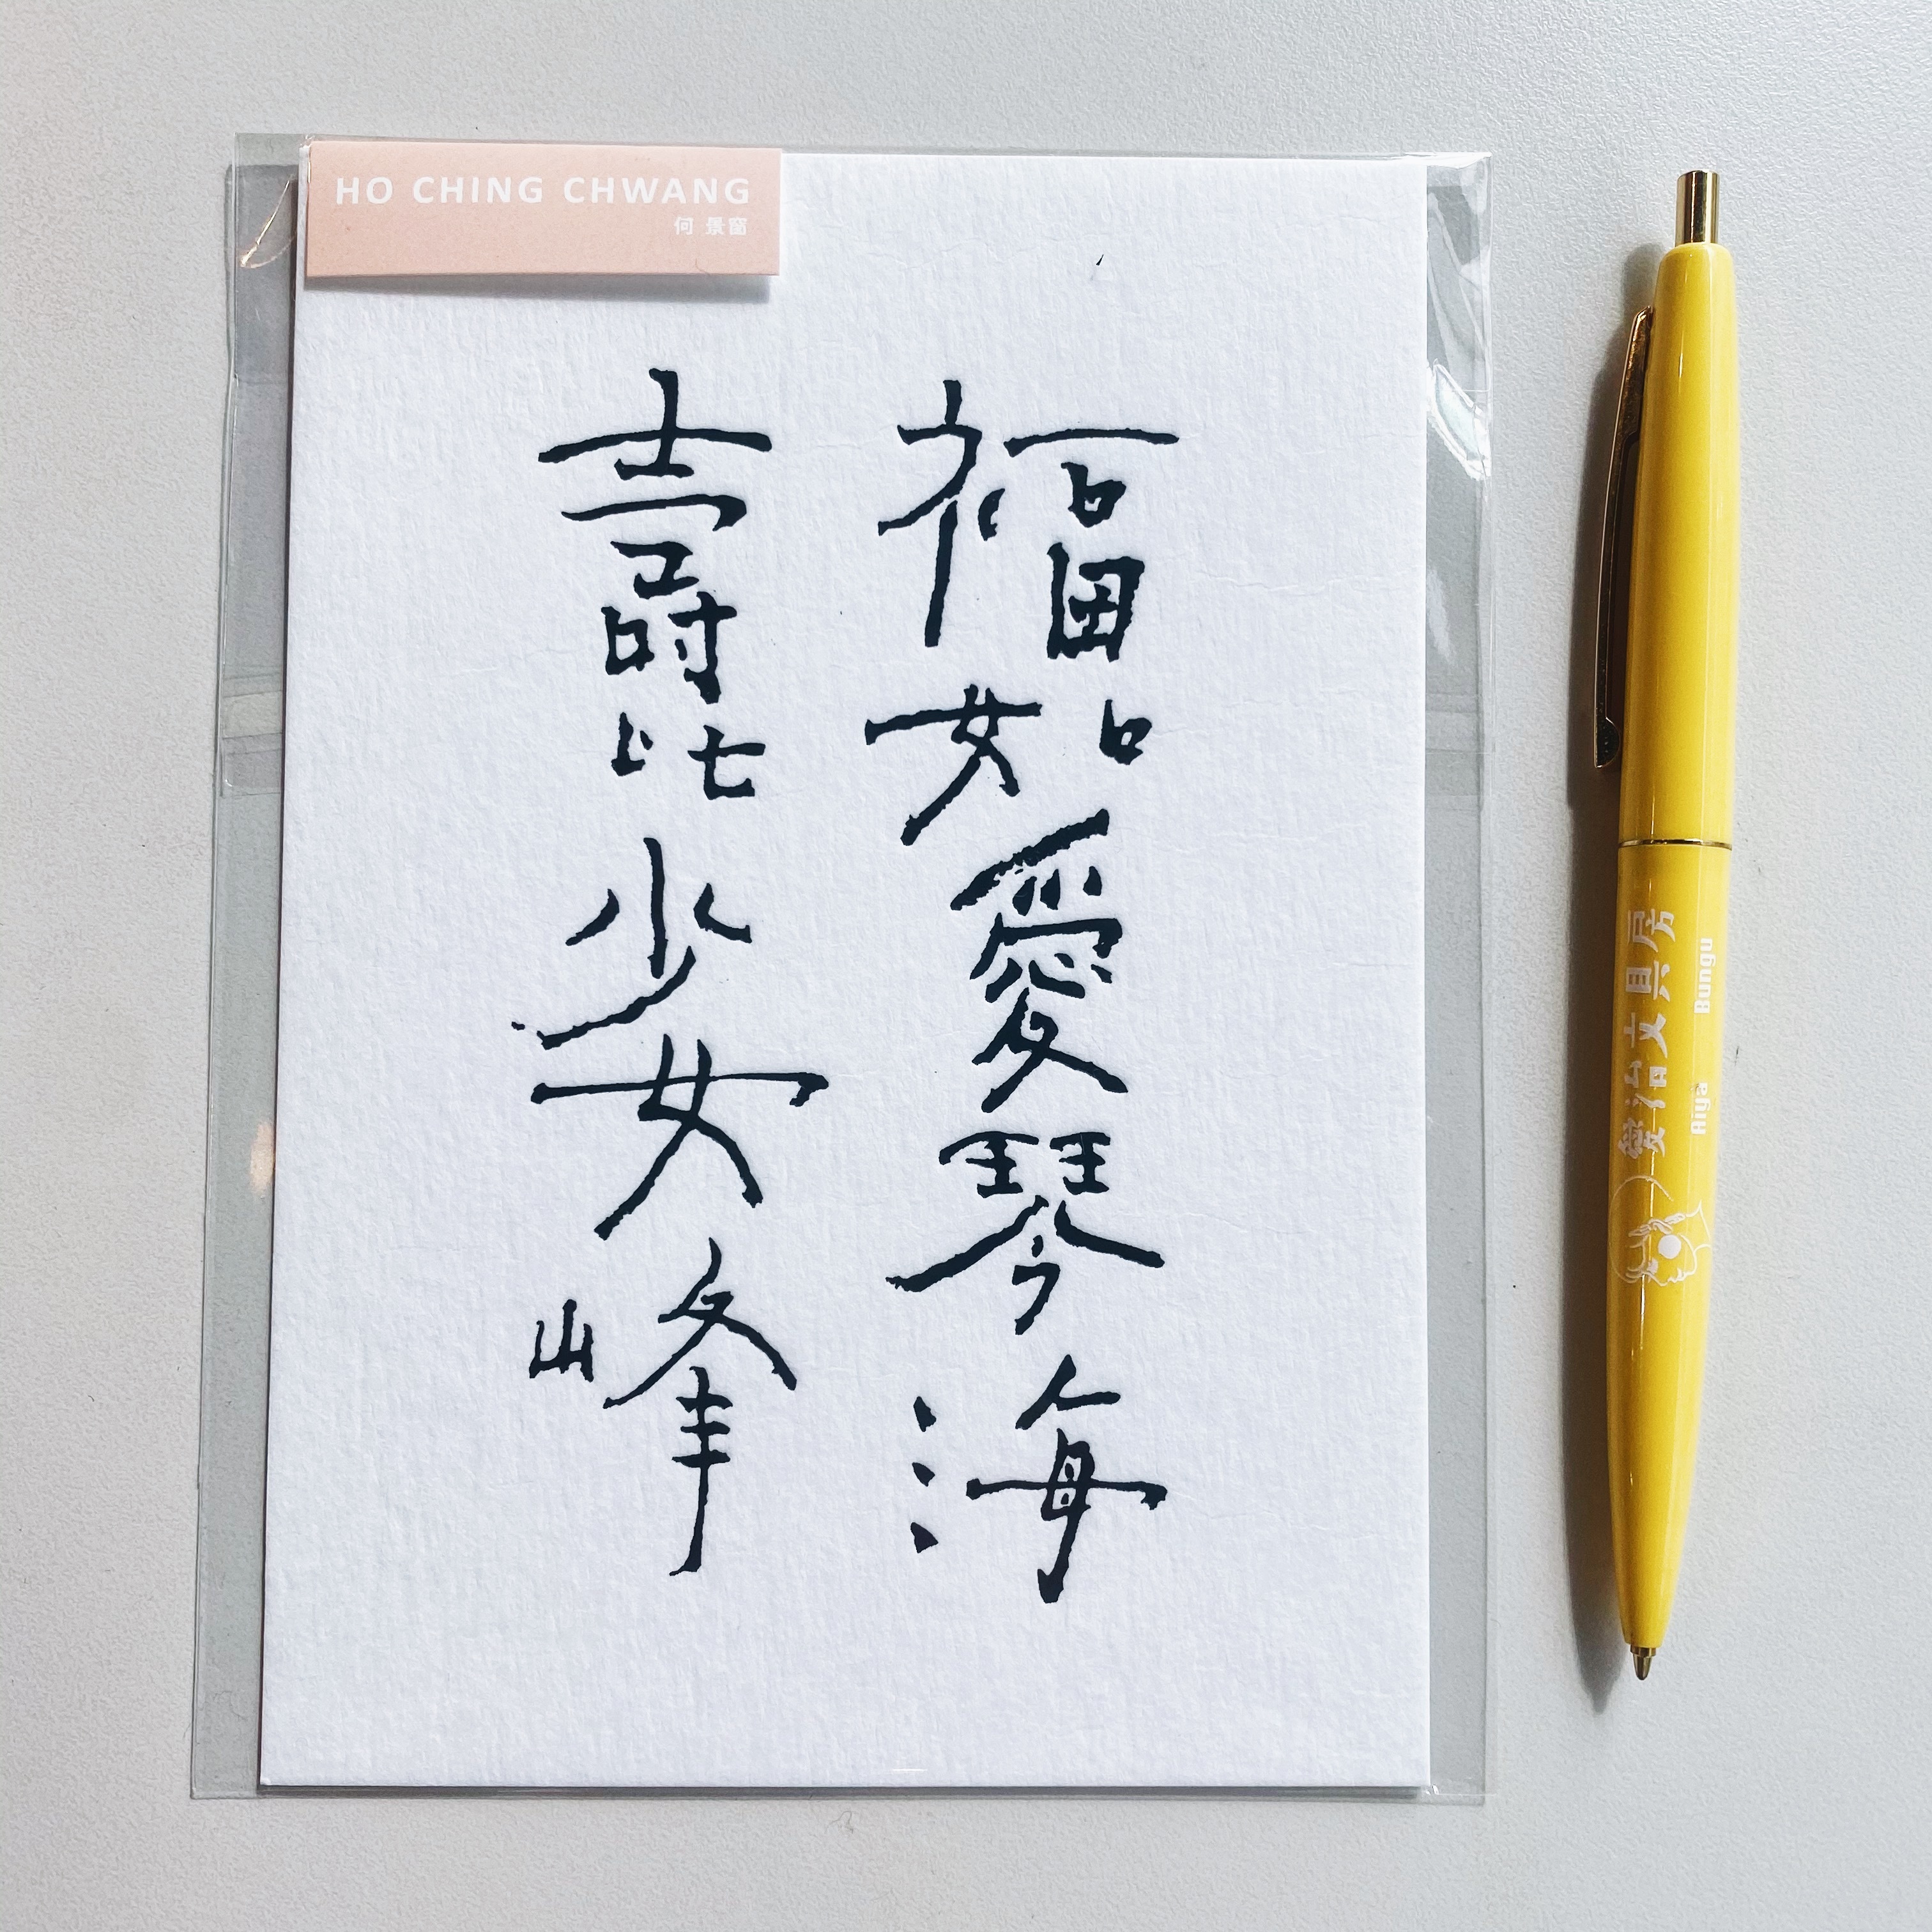 HO CHING CHWANG
何景窗
福如愛琴海
壽比少女峰
愛治文具房
Aiya Bungu